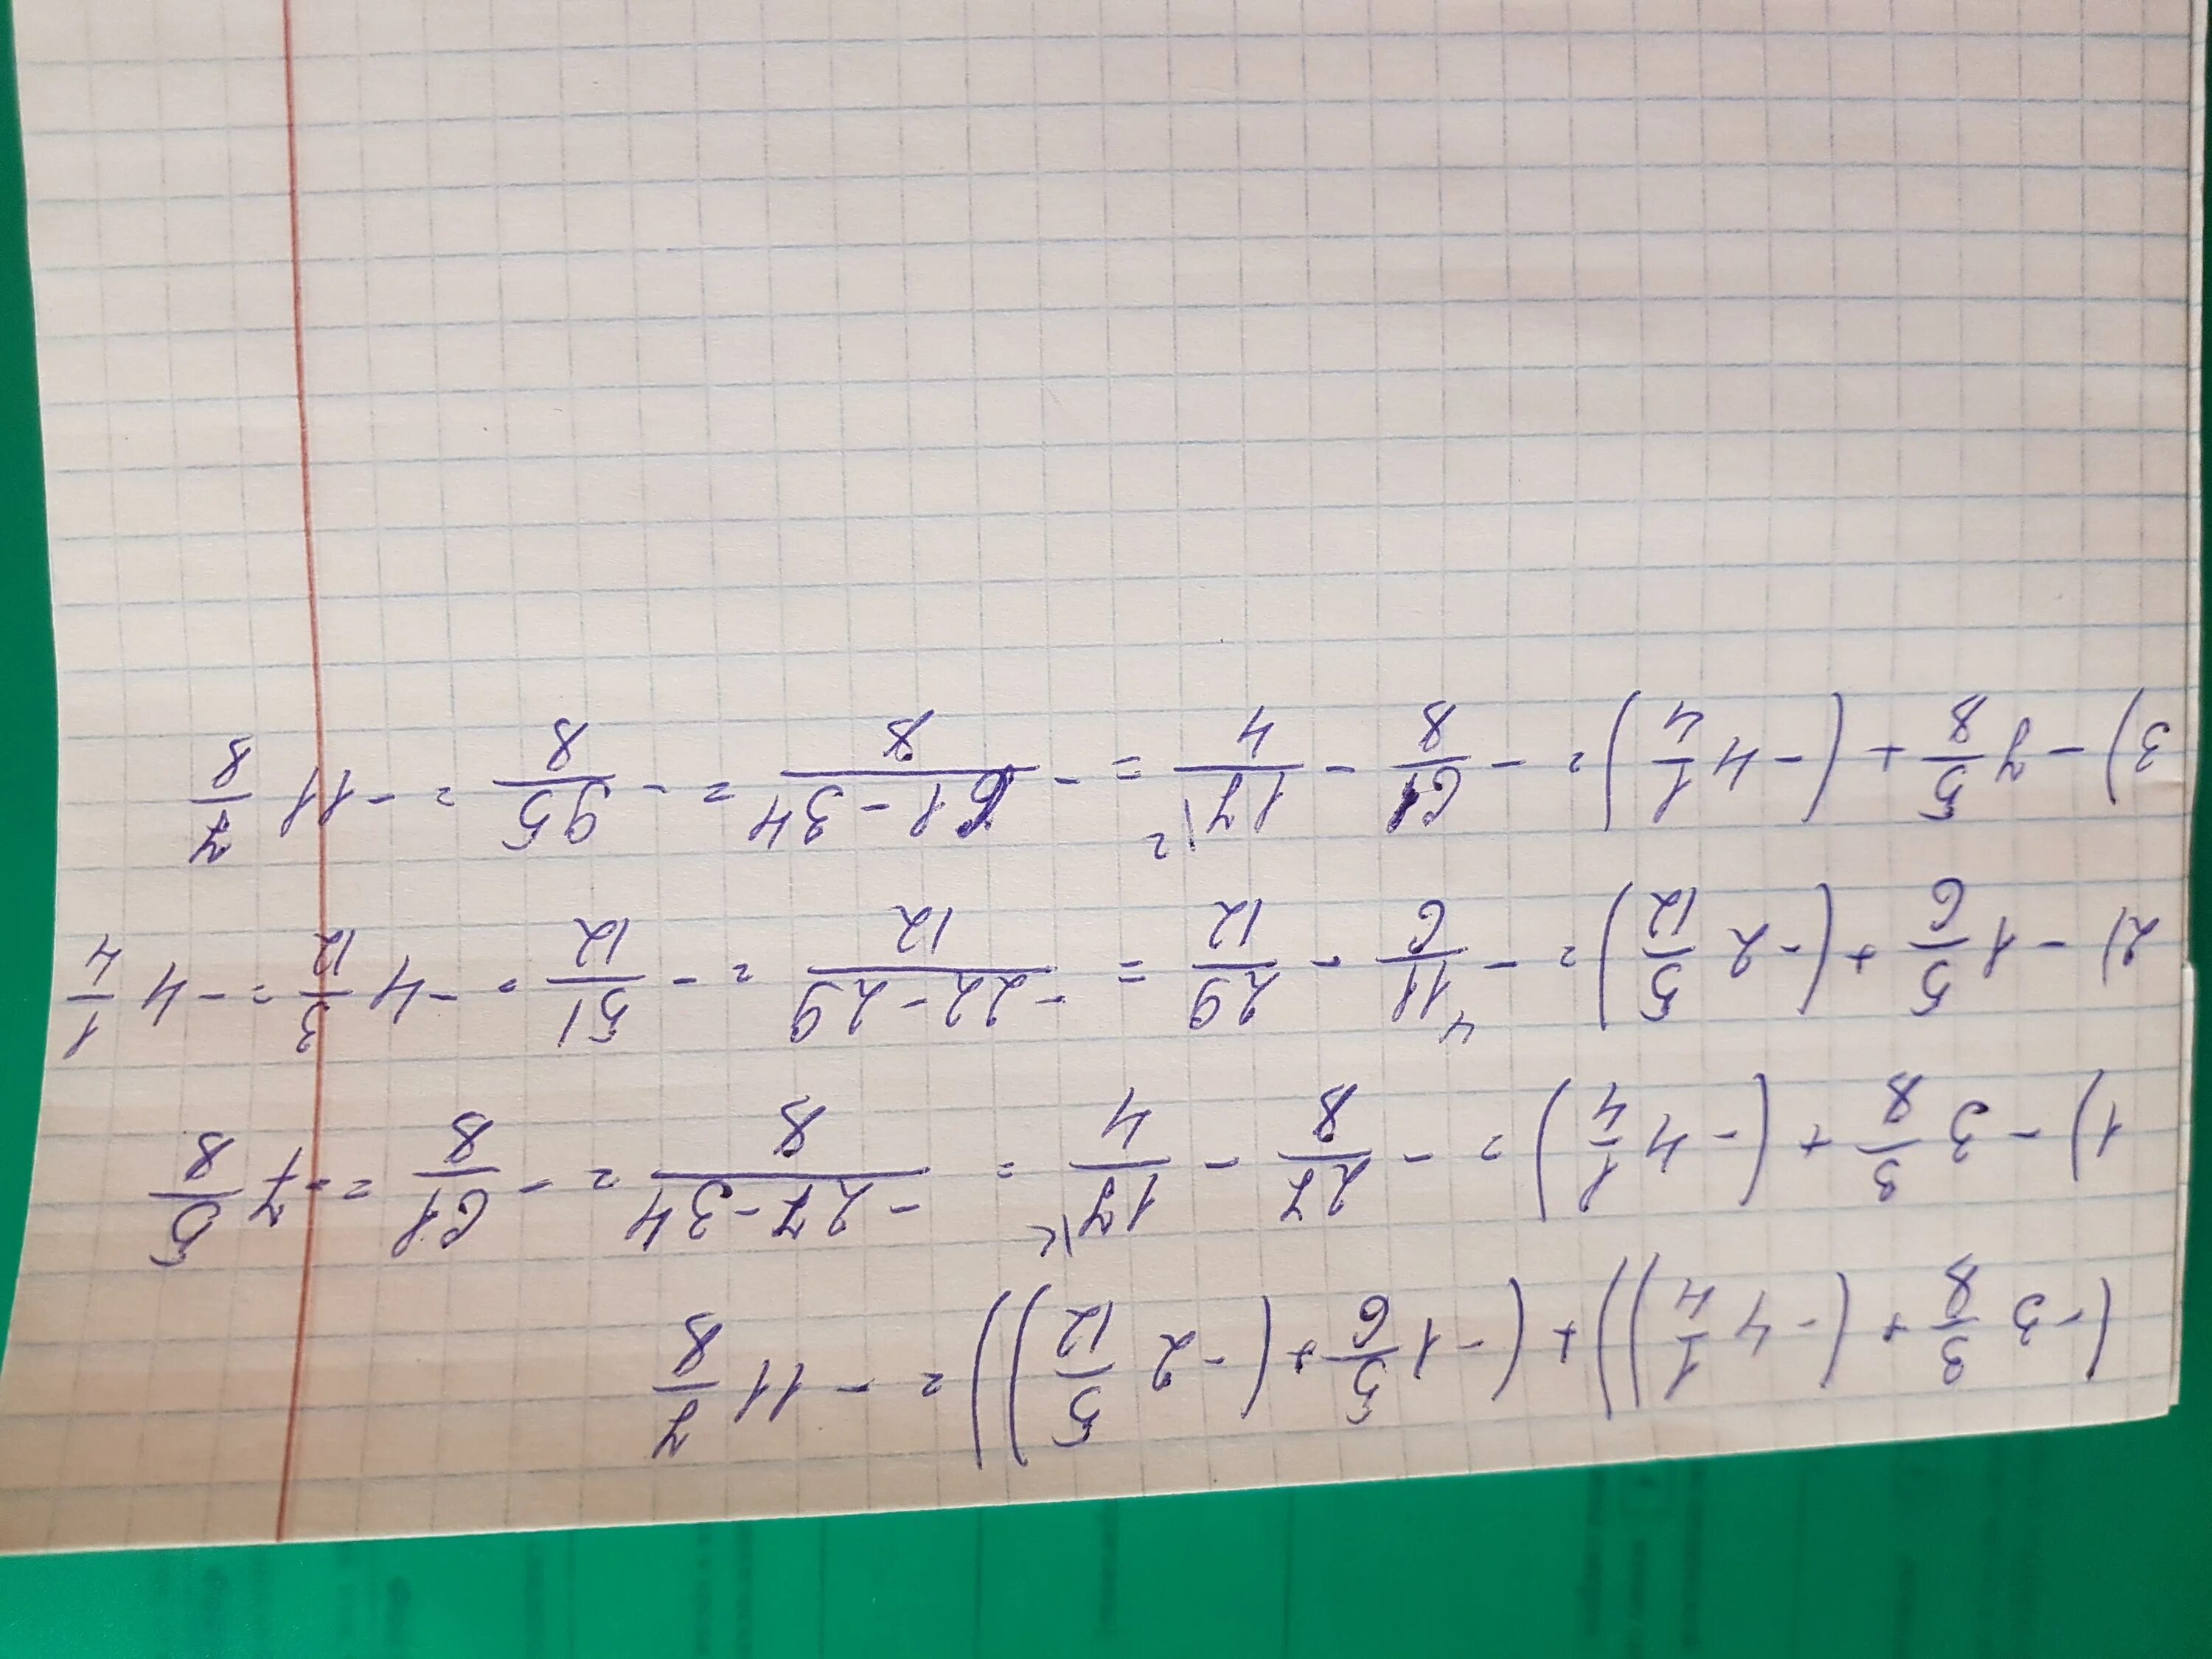 (-3 3/8 + (-4 1/4)) + (-1 5/6 + (-2 5/12)) = -11 7/8
1) -3 3/8 + (-4 1/4) = -27/8 - 17/4\2 = (-27-34)/8 = -61/8 = -7 5/8
2) -1 5/6 + (-2 5/12) = -11/6 - 29/12 = (-22-29)/12 = -51/12 = -4 3/12 = -4 1/4
3) -7 5/8 + (-4 1/4) = -61/8 - 17/4\2 = -(61-34)/8 = -95/8 = -11 7/8